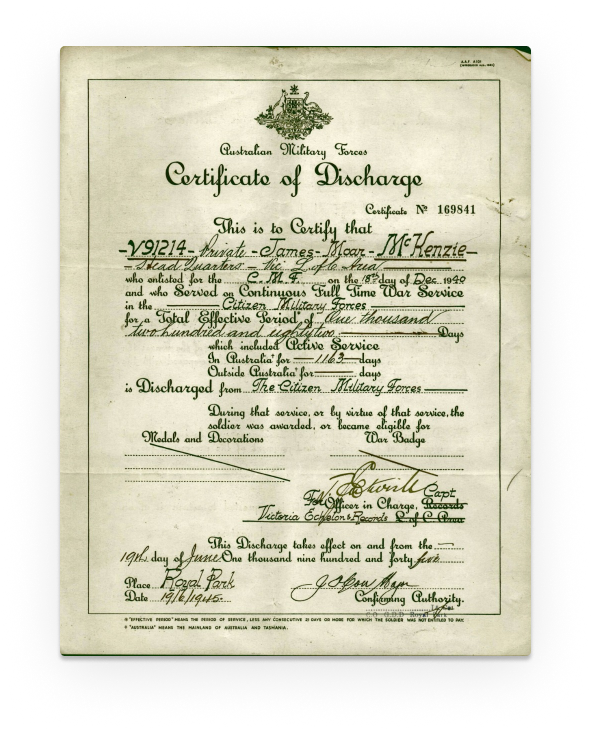 A.A.F. A159
Australian Military Forces
Certificate of Discharge
Certificate No 169841
This is to Certify that
-V91214- Private - James - Moar - McKenzie-
- Head Quarters - Vic L of C Area
who enlisted for the C.M.F. on the 18th day of Dec 1940
and who Served on Continuous Full Time War Service
in the Citizen Military Forces
for a Total Effective Period* of One thousand
two hundred and eighty two Days
which included Active Service
In Australia° for 1163 days
Outside Australia° for days
is Discharged from The Citizen Military Forces
During that service, or by virtue of that service, the
soldier was awarded, or became eligible for
Medals and Decorations War Badge
Capt
For Officer in Charge, Records
Victoria Echelon & Records L of C Area
This Discharge takes effect on and from the
19th day of June One thousand nine hundred and forty five
Place Royal Park
Date 19/6/1945. Major
Confirming Authority.
G.D.D Royal Park
* "EFFECTIVE PERIOD" MEANS THE PERIOD OF SERVICE, LESS ANY CONSECUTIVE 21 DAYS OR MORE FOR WHICH THE SOLDIER WAS NOT ENTITLED TO PAY.
° "AUSTRALIA" MEANS THE MAINLAND OF AUSTRALIA AND TASMANIA.